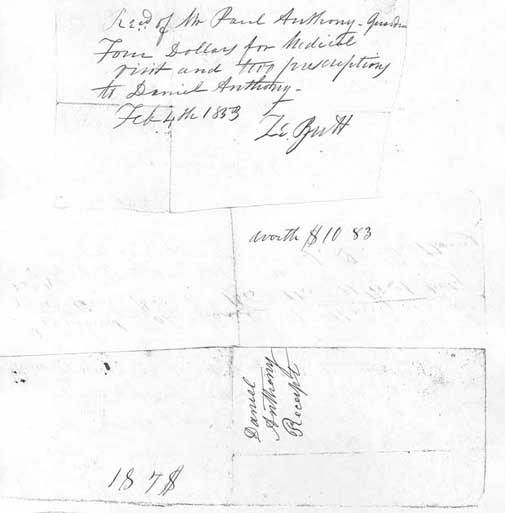 Recd. of Mr Paul Anthony - Guardn
Four Dollars for Medical
visit and two prescriptions
to Daniel Anthony -
Feb 4th 1853
worth $10 83
Daniel
Anthony
Receipt
18 7 $